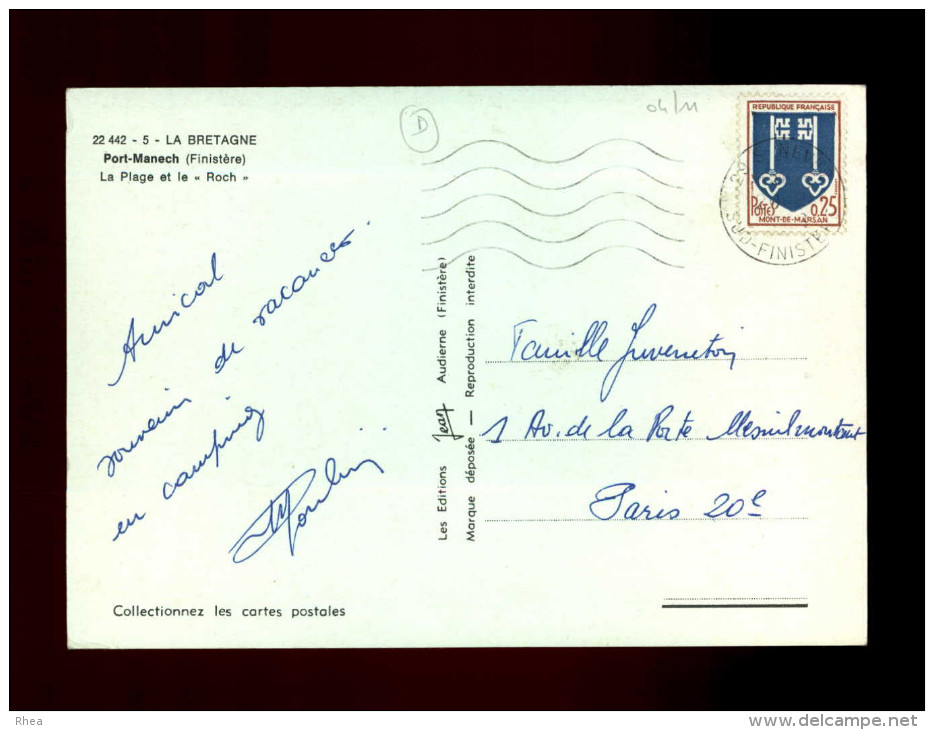 22 442 - 5 - LA BRETAGNE
Port-Manech (Finistère)
La Plage et le « Roch »
Amical
souvenir de vacances
en camping
Collectionnez les cartes postales
Les Editions Jean Audierne (Finistère)
Marque déposée — Reproduction interdite
D
04/11
REPUBLIQUE FRANÇAISE
POSTES 0,25
MONT-DE-MARSAN
SUD-FINISTERE
Famille
1 Av. de la Porte Mesnilmontant
Paris 20e
Rhea
www.delcampe.net